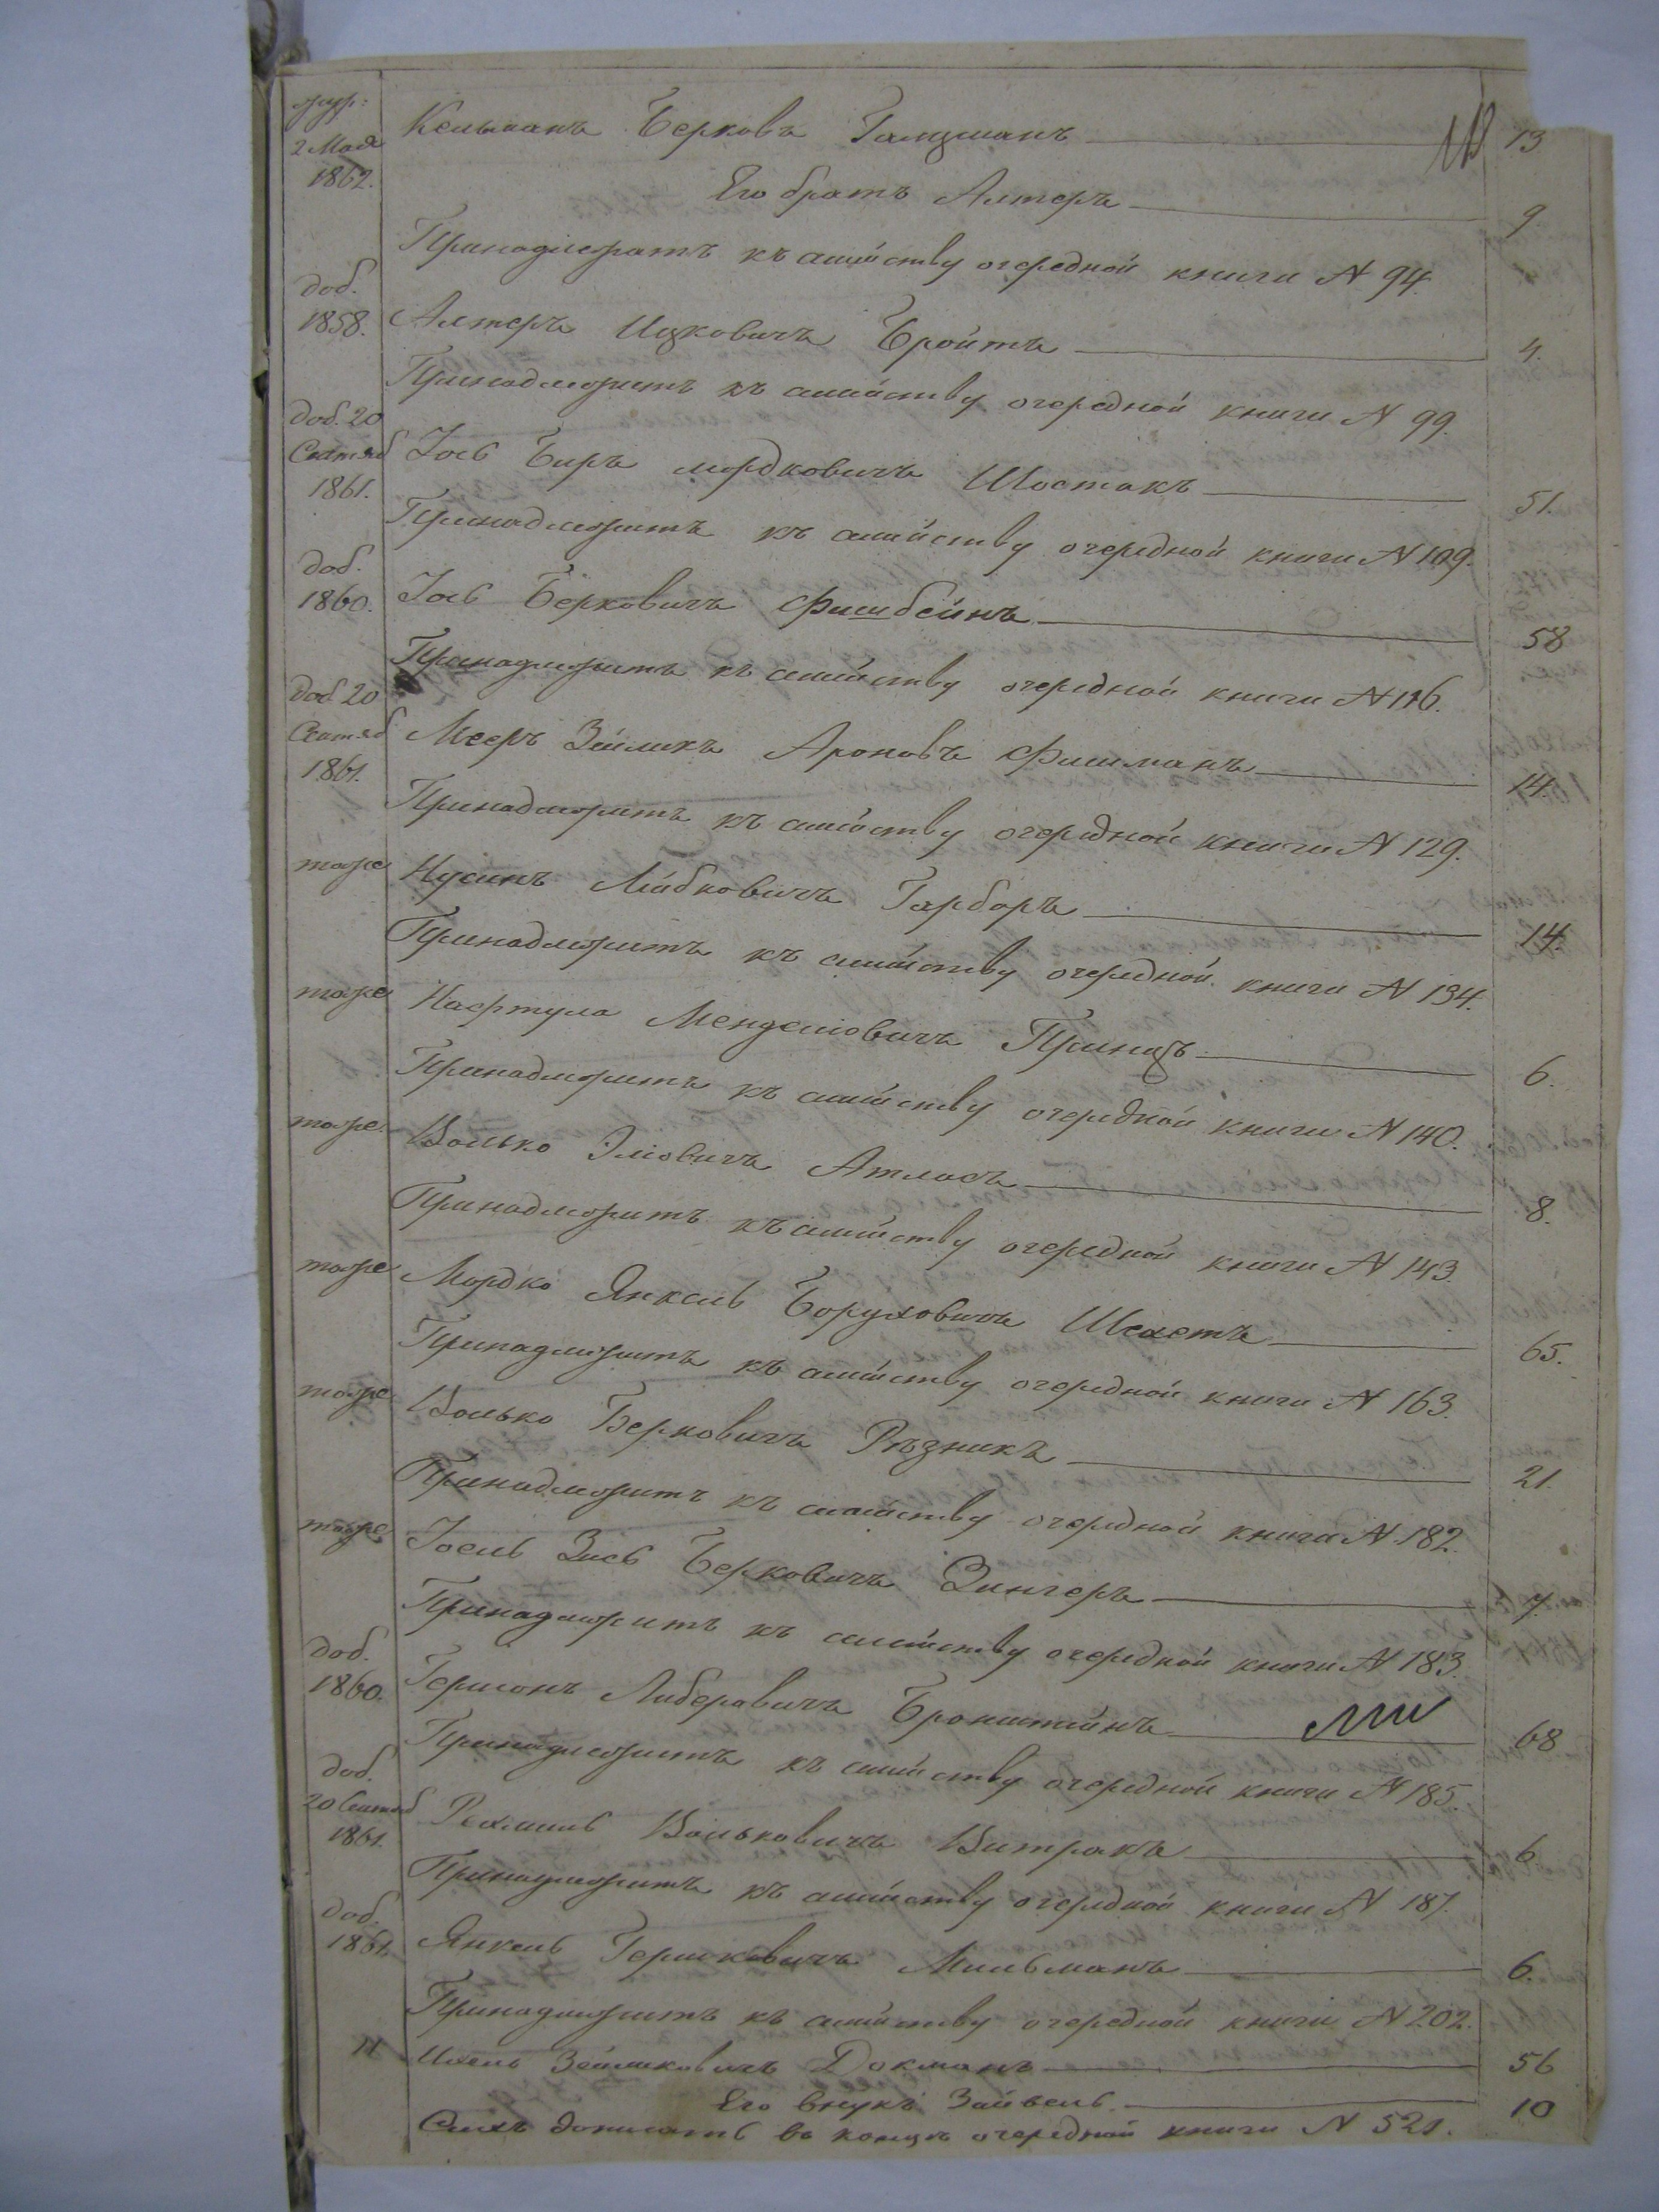 2 Мая
1862.
Кельманъ Берковъ Галцманъ 13
Его братъ Алтеръ 9
Принадлежатъ къ семйству очередной книги N 94.
доб.
1858.
Алтеръ Ицковичъ Бройтъ 4.
Принадлежитъ къ семйству очередной книги N 99.
доб. 20
Сентяб
1861.
Іось Беръ мордковичъ Шостакъ 51.
Принадлежитъ къ семйству очередной книги N 109.
доб.
1860.
Іось Берковичъ Фишбейнъ 58
Принадлежитъ къ семйству очередной книги N 116.
доб 20
Сентяб
1861.
Мееръ Зейликъ Ароновъ Фишманъ 14.
Принадлежитъ къ семйству очередной книги N 129.
тоже Нусинъ Лейбковичъ Гарборъ 14.
Принадлежитъ къ семйству очередной книги N 134.
тоже Нафтула Менделіовичъ 6.
Принадлежитъ къ семйству очередной книги N 140.
тоже. Волько Эліовичъ Атласъ 8.
Принадлежитъ къ семйству очередной книги N 143.
тоже Мордко Янкель Боруховичъ Шехетъ 65.
Принадлежитъ къ семйству очередной книги N 163.
тоже Волько Берковичъ Рѣзникъ 21.
Принадлежитъ къ семйству очередной книги N 182.
тоже Іосель Зись Берковичъ Зингеръ 7.
Принадлежитъ къ семйству очередной книги N 183.
доб.
1860.
Гершонъ Либеровичъ Бронштейнъ 68
Принадлежитъ къ семйству очередной книги N 185.
доб.
20 Сентяб
1861.
Рахмиль Вольковичъ Витракъ 6
Принадлежитъ къ семйству очередной книги N 187.
доб.
1861.
Янкель Гершковичъ Мильманъ 6.
Принадлежитъ къ семйству очередной книги N 202.
" Ихель Зейликовичъ Докманъ 56
Его внукъ Зайвель 10
Сихъ дописать въ концѣ очередной книги N 521.